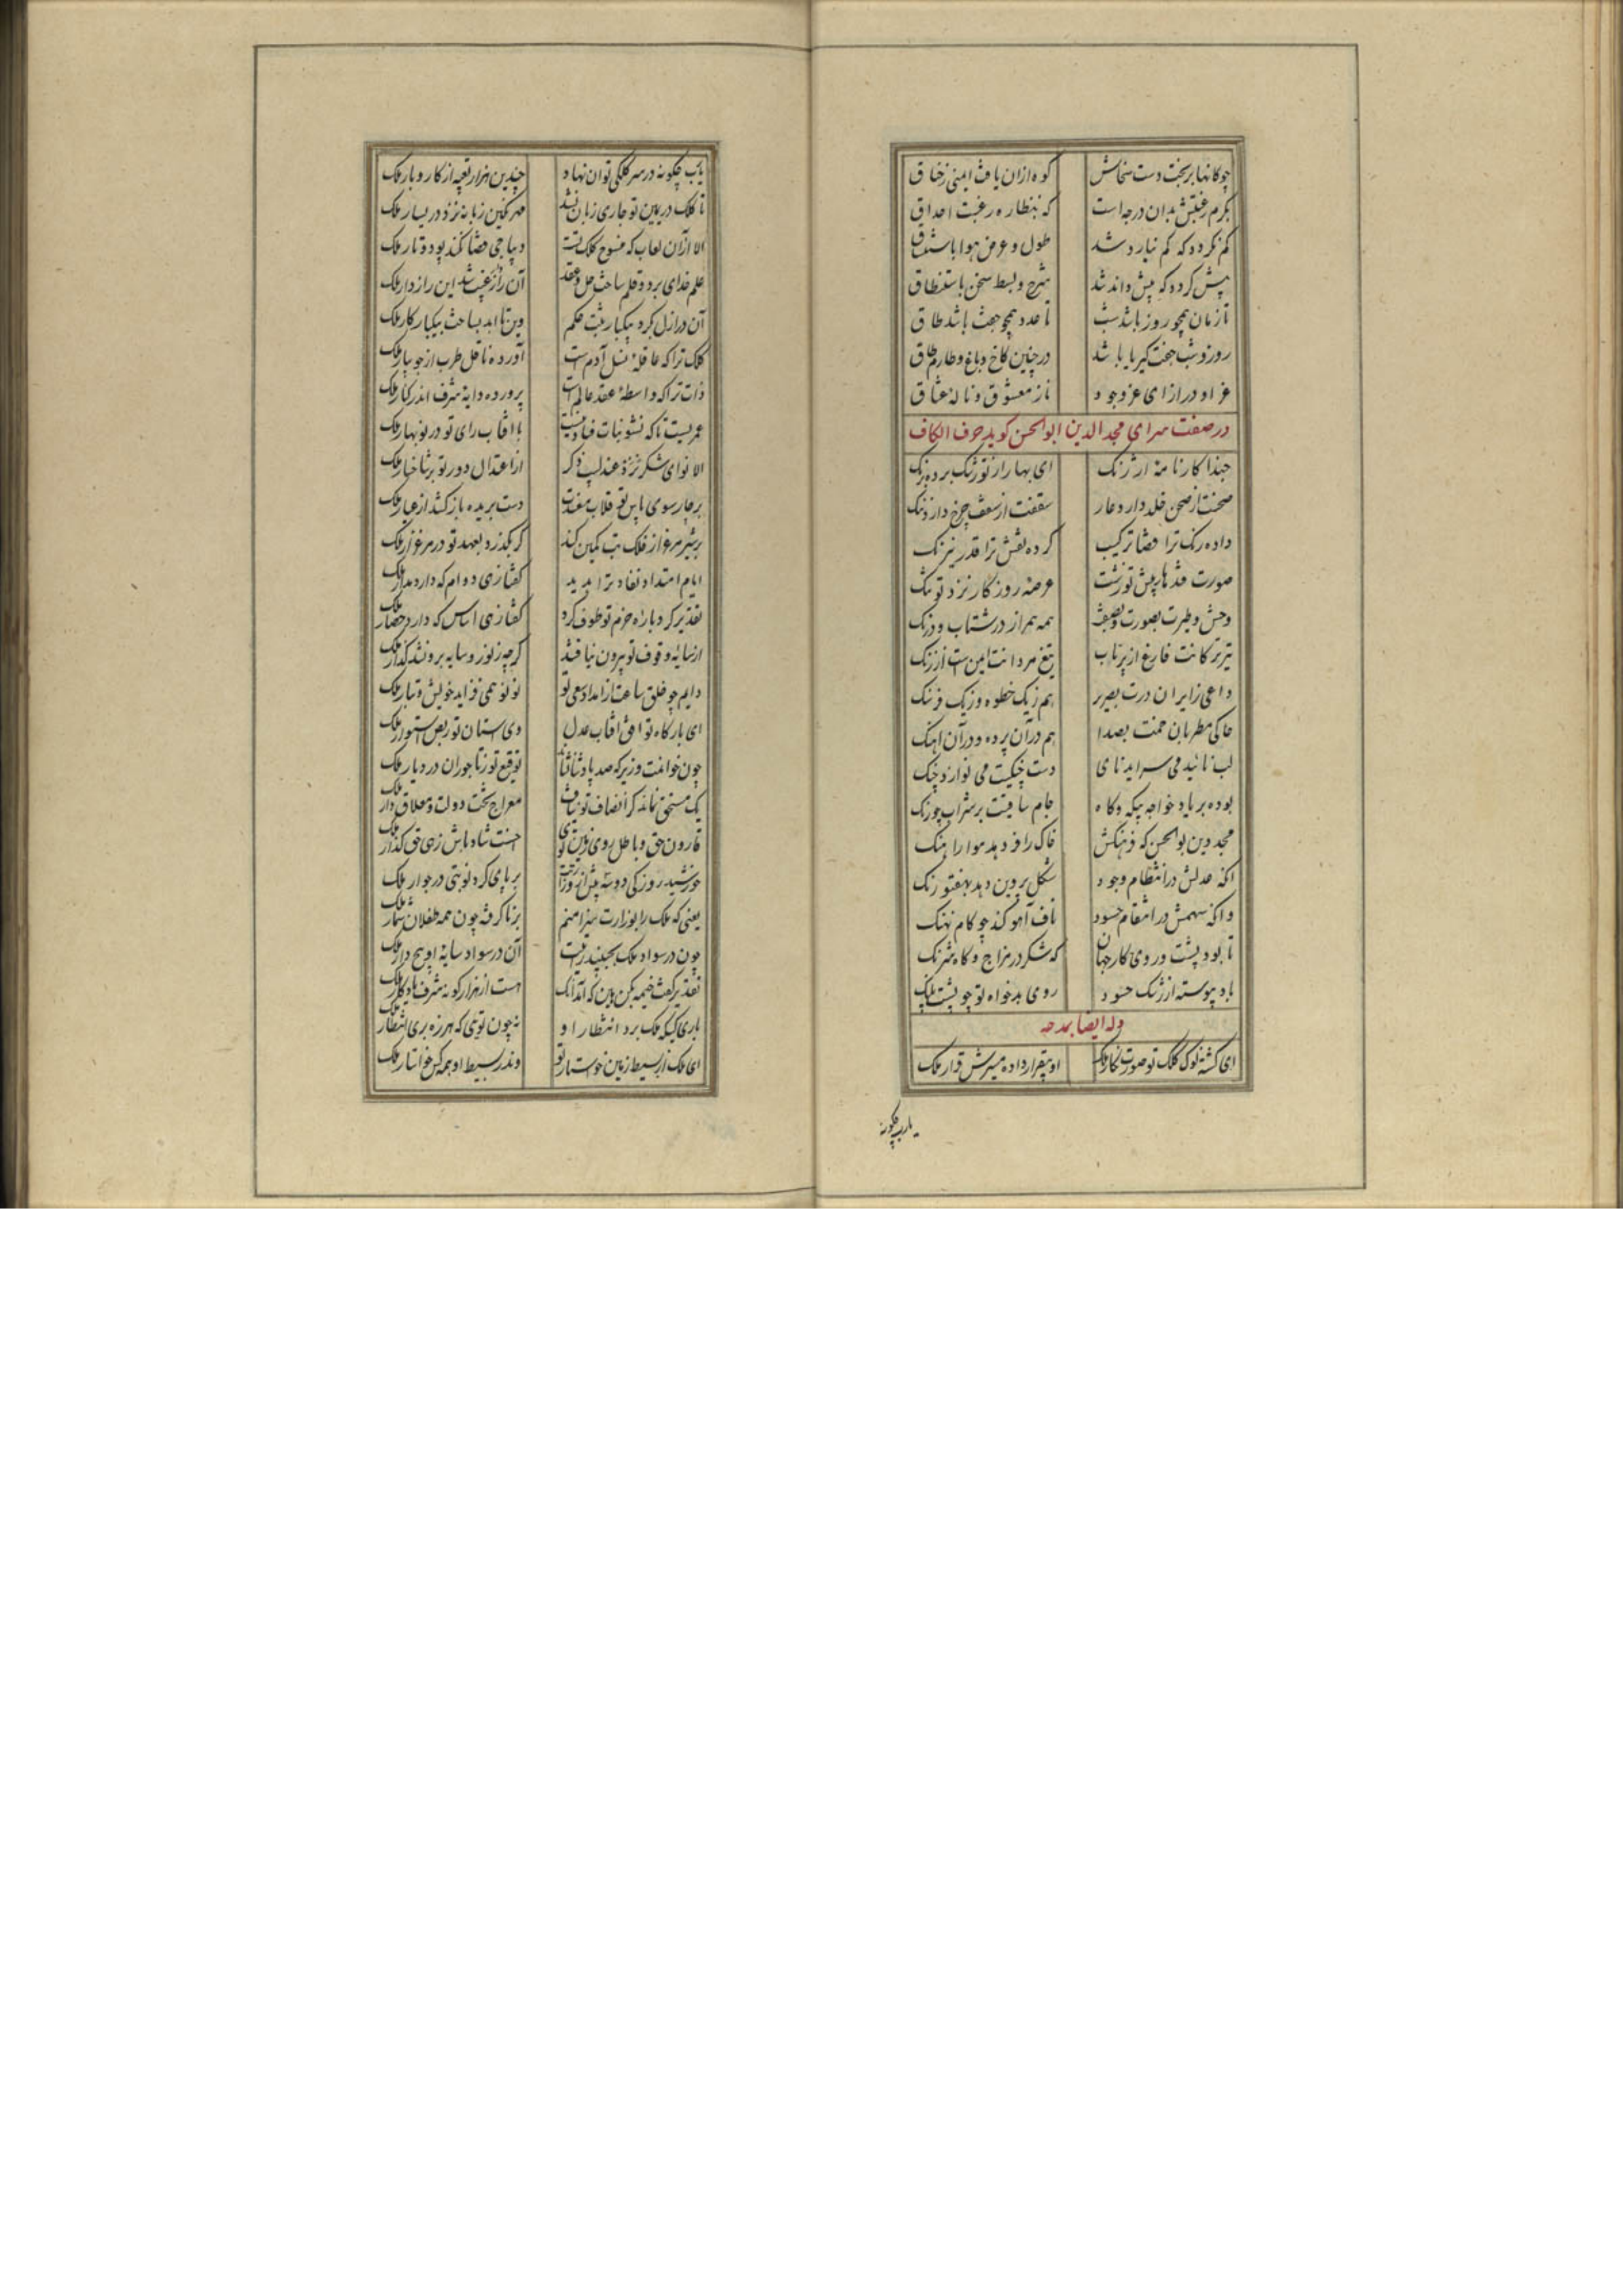 چو کانها بریخت دست سخاش کوه ازان یافت ایمنی زخناق
بکرم رغبتش بدان درجه است که بنظاره رغبت احداق
کم نکردد که کم نیارد شد طول و عرض هوا باستنشاق
پیش کردد که پیش داند شد شرح و بسط سخن باستنطاق
تا زمان همچو روز باشد شب تا عدد همچو جفت باشد طاق
روز و شب جفت کبریا باشد در چنین کاخ و باغ و طارم و طاق
عز او در ازای عز وجود ناز معشوق و نالهٔ عشاق
در صفت سرای مجد الدین ابو الحسن کوید حرف الکاف
حبذا کارنامهٔ ارژنک ای بهار از تو رشک برده برنک
صحنت از صحن خلد دارد عار سقفت از سقف چرخ دارد ننک
داده رنک ترا قضا ترکیب کرده نقش ترا قدر نیرنک
صورت قندهار پیش تو زشت عرصهٔ روزکار نزد تو تنک
وحش و طیرت بصورت و بصفت همه همراز در شتاب و درنک
تیر ترکانت فارغ از پرتاب تیغ مردانت ایمن است از زنک
داعی زایران درت بصریر هم زیک خطوه و زیک فرسنک
حاکی مطربان خمت بصدا هم در آن پرده و در آن آهنک
لب نائیت می سراید نای دست چنکیت می نوازد چنک
بوده بر یاد خواجه بیکه و کاه جام ساقیت پر شراب چو زنک
مجد دین بوالحسن که فرهنکش خاک را فر دهد هوا را هنک
آنکه عدلش در انتظام وجود شکل پروین دهد بهفتورنک
وانکه سهمش در انتقام حسود ناف آهو کند چو کام نهنک
تا بود پشت و روی کار جهان که شکر در مزاج و کاه شرنک
باد پیوسته از زنک حسود روی بدخواه تو چو پشت پلنک
وله ایضا بمدحه
ای کشته نوک کلک تو صورت نکار ملک او بیقرار داده مسیرش قرار ملک
یارب چکونه
یارب چکونه در سر کلکی توان نهاد چندین هزار تعبیه از کار و بار ملک
تا کلک در یمین تو جاری زبان نشد مهر نکین زبانه نزد در یسار ملک
الا از آن لعاب که منسوج کلک تست دیباجی قضا نکند پود و تار ملک
علم خدای برد و قلم ساخت حل و عقد آن راز غیب شد این رازدار ملک
آن در ازل بکرد بیکبار ثبت حکم وین تا ابد بساخت بیکبار کار ملک
کلک ترا که عاقلهٔ نسل آدم است آورده ناقل طرب از جویبار ملک
ذات ترا که واسطهٔ عقد عالم است پرورده دایهٔ شرف اندر کنار ملک
عمریست تا که نشو نبات فساد نیست با آفتاب رای تو در نوبهار ملک
الا نوای شکر نزد عندلیب ذکر از اعتدال دور تو بر شاخسار ملک
بر چار سوی باس تو قلاب مفسدت دست بریده باز کشد از عیار ملک
بر شیر مرغزار فلک تب کمین کند کر بکذرد بعهد تو در مرغزار ملک
ایام امتداد نفاد ترا بدید کفتا زهی دوام که دارد مدار ملک
تقدیر کرد بارهٔ حزم تو طوف کرد کفتا زهی اساس که دارد حصار ملک
از سایهٔ وقوف تو بیرون نیافتند کرچه ز نور و سایه برون شد کذار ملک
دایم چو خلق ساعت از امداد سعی تو نو نو همی فزاید خویش و تبار ملک
ای بارکاه تو افق آفتاب عدل وی آستان تو ربض استوار ملک
چون خوانمت وزیر که صد پادشا نشاند توقیع تو ز تاجوران در دیار ملک
یک مستحق نماند کز انصاف تو نیافت معراج تخت دولت و معلاق دار ملک
فارون حق و باطل روی زمین توی احسنت شاد باش زهی حق کذار ملک
خورشید روزکی دو سه پیش از وزارتت بر پای کرد نوبتی در جوار ملک
یعنی که ملک را بوزارت سزا منم برنا کرفته چون همه طفلان شمار ملک
چون در سواد ملک بجنبید رایتت آن در سواد سایهٔ او هیچ دار ملک
تقدیر کفت خیمه بکن هین که آمد آنک هست از هزار کونه شرف یادکار ملک
باری کسیکه ملک برد انتظار او نه چون توی که هرزه بری انتظار ملک
ای ملک از بسیط زمین خواستار تو وندر بسیط او همه کس خواستار ملک